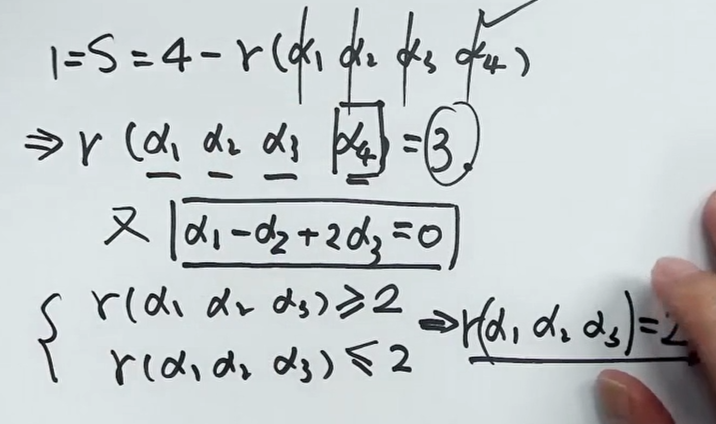 1=S=4-r(α₁ α₂ α₃ α₄)
⇒ r(α₁ α₂ α₃ α₄)=3.
又 α₁-α₂+2α₃=0
{ r(α₁ α₂ α₃)≥2 ⇒ r(α₁ α₂ α₃)=2
r(α₁ α₂ α₃)≤2